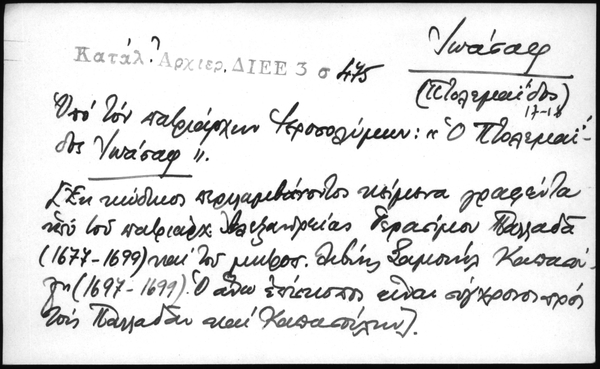 Ἰωάσαφ
Κατάλ. Ἀρχιερ. ΔΙΕΕ 3 σ 475
(Πτολεμαΐδος)
17-18
Ὑπό τόν πατριάρχην Ἱεροσολύμων: "Ὁ Πτολεμαΐ-
δος Ἰωάσαφ".
[Ἐκ κώδικος περιλαμβάνοντος κείμενα γραφέντα
ὑπό τοῦ πατριάρχ. Ἀλεξανδρείας Γερασίμου Παλλαδᾶ
(1677-1699) καί τοῦ μητροπ. Λιβύης Σαμουήλ Καπασού-
λη (1697-1699). Ὁ ἄνω ἐπίσκοπος εἶναι σύγχρονος πρός
τούς Παλλαδᾶν καί Καπασούλην].